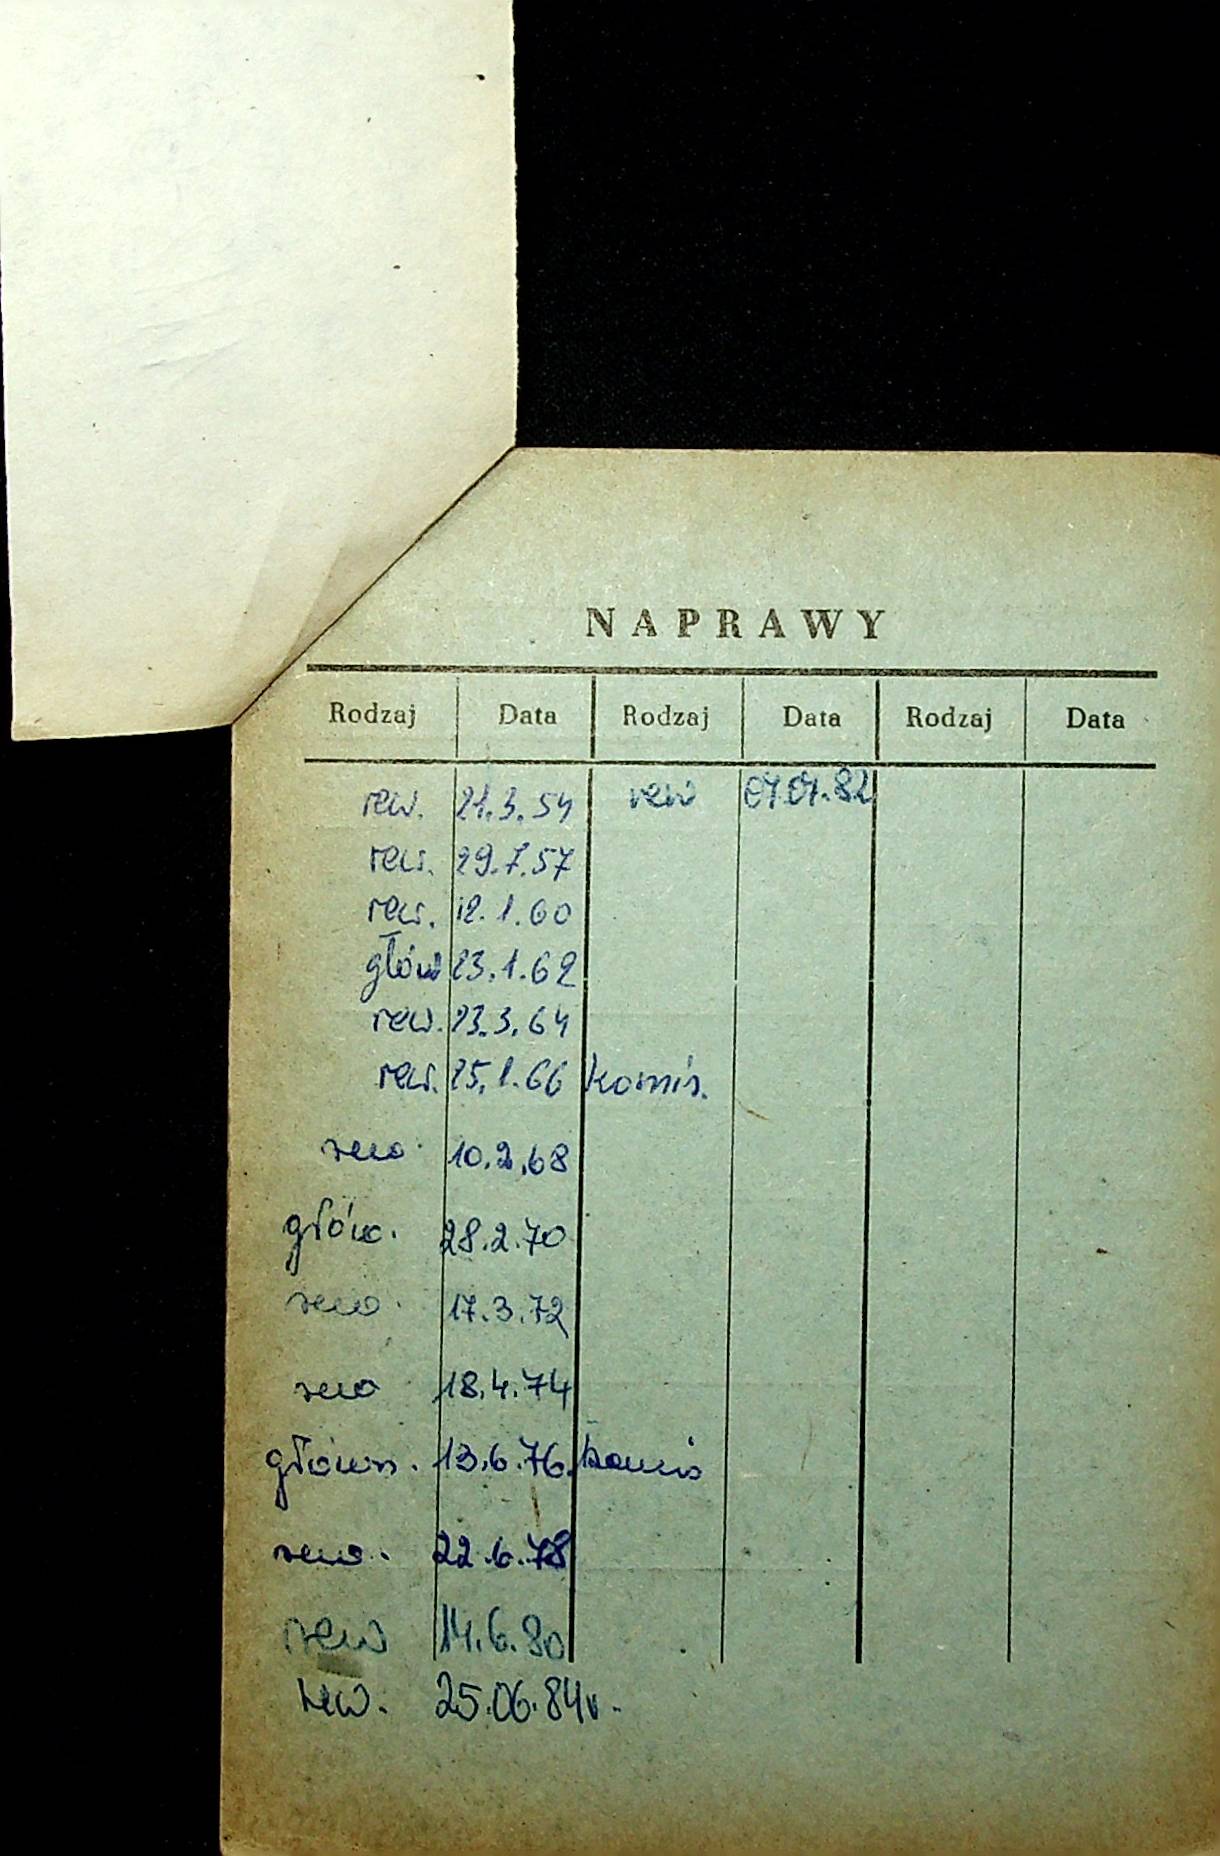 NAPRAWY
Rodzaj Data Rodzaj Data Rodzaj Data
rew. 21.3.54 rew 07.07.82
rew. 29.7.57
rew. 12.1.60
główn 23.1.62
rew. 23.3.64
rew. 25.1.66 komis.
rew. 10.2.68
głów. 28.2.70
rew. 17.3.72
rew 18.4.74
główn. 13.6.76. komis
rew. 22.6.78
rew 14.6.80
rew. 25.06.84r.